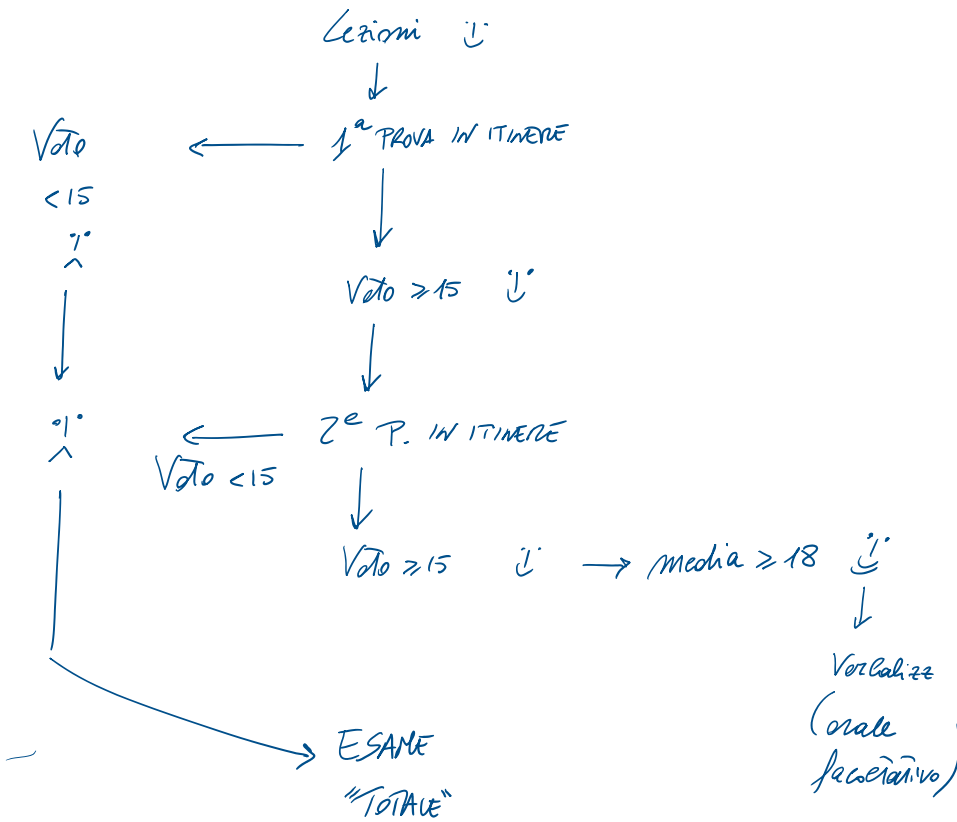 Lezioni
1ª PROVA IN ITINERE
Voto
<15
Voto ≥15
2ª P. IN ITINERE
Voto <15
Voto ≥15 → media ≥18
Verbalizz
(orale
facoltativo)
ESAME
"TOTALE"